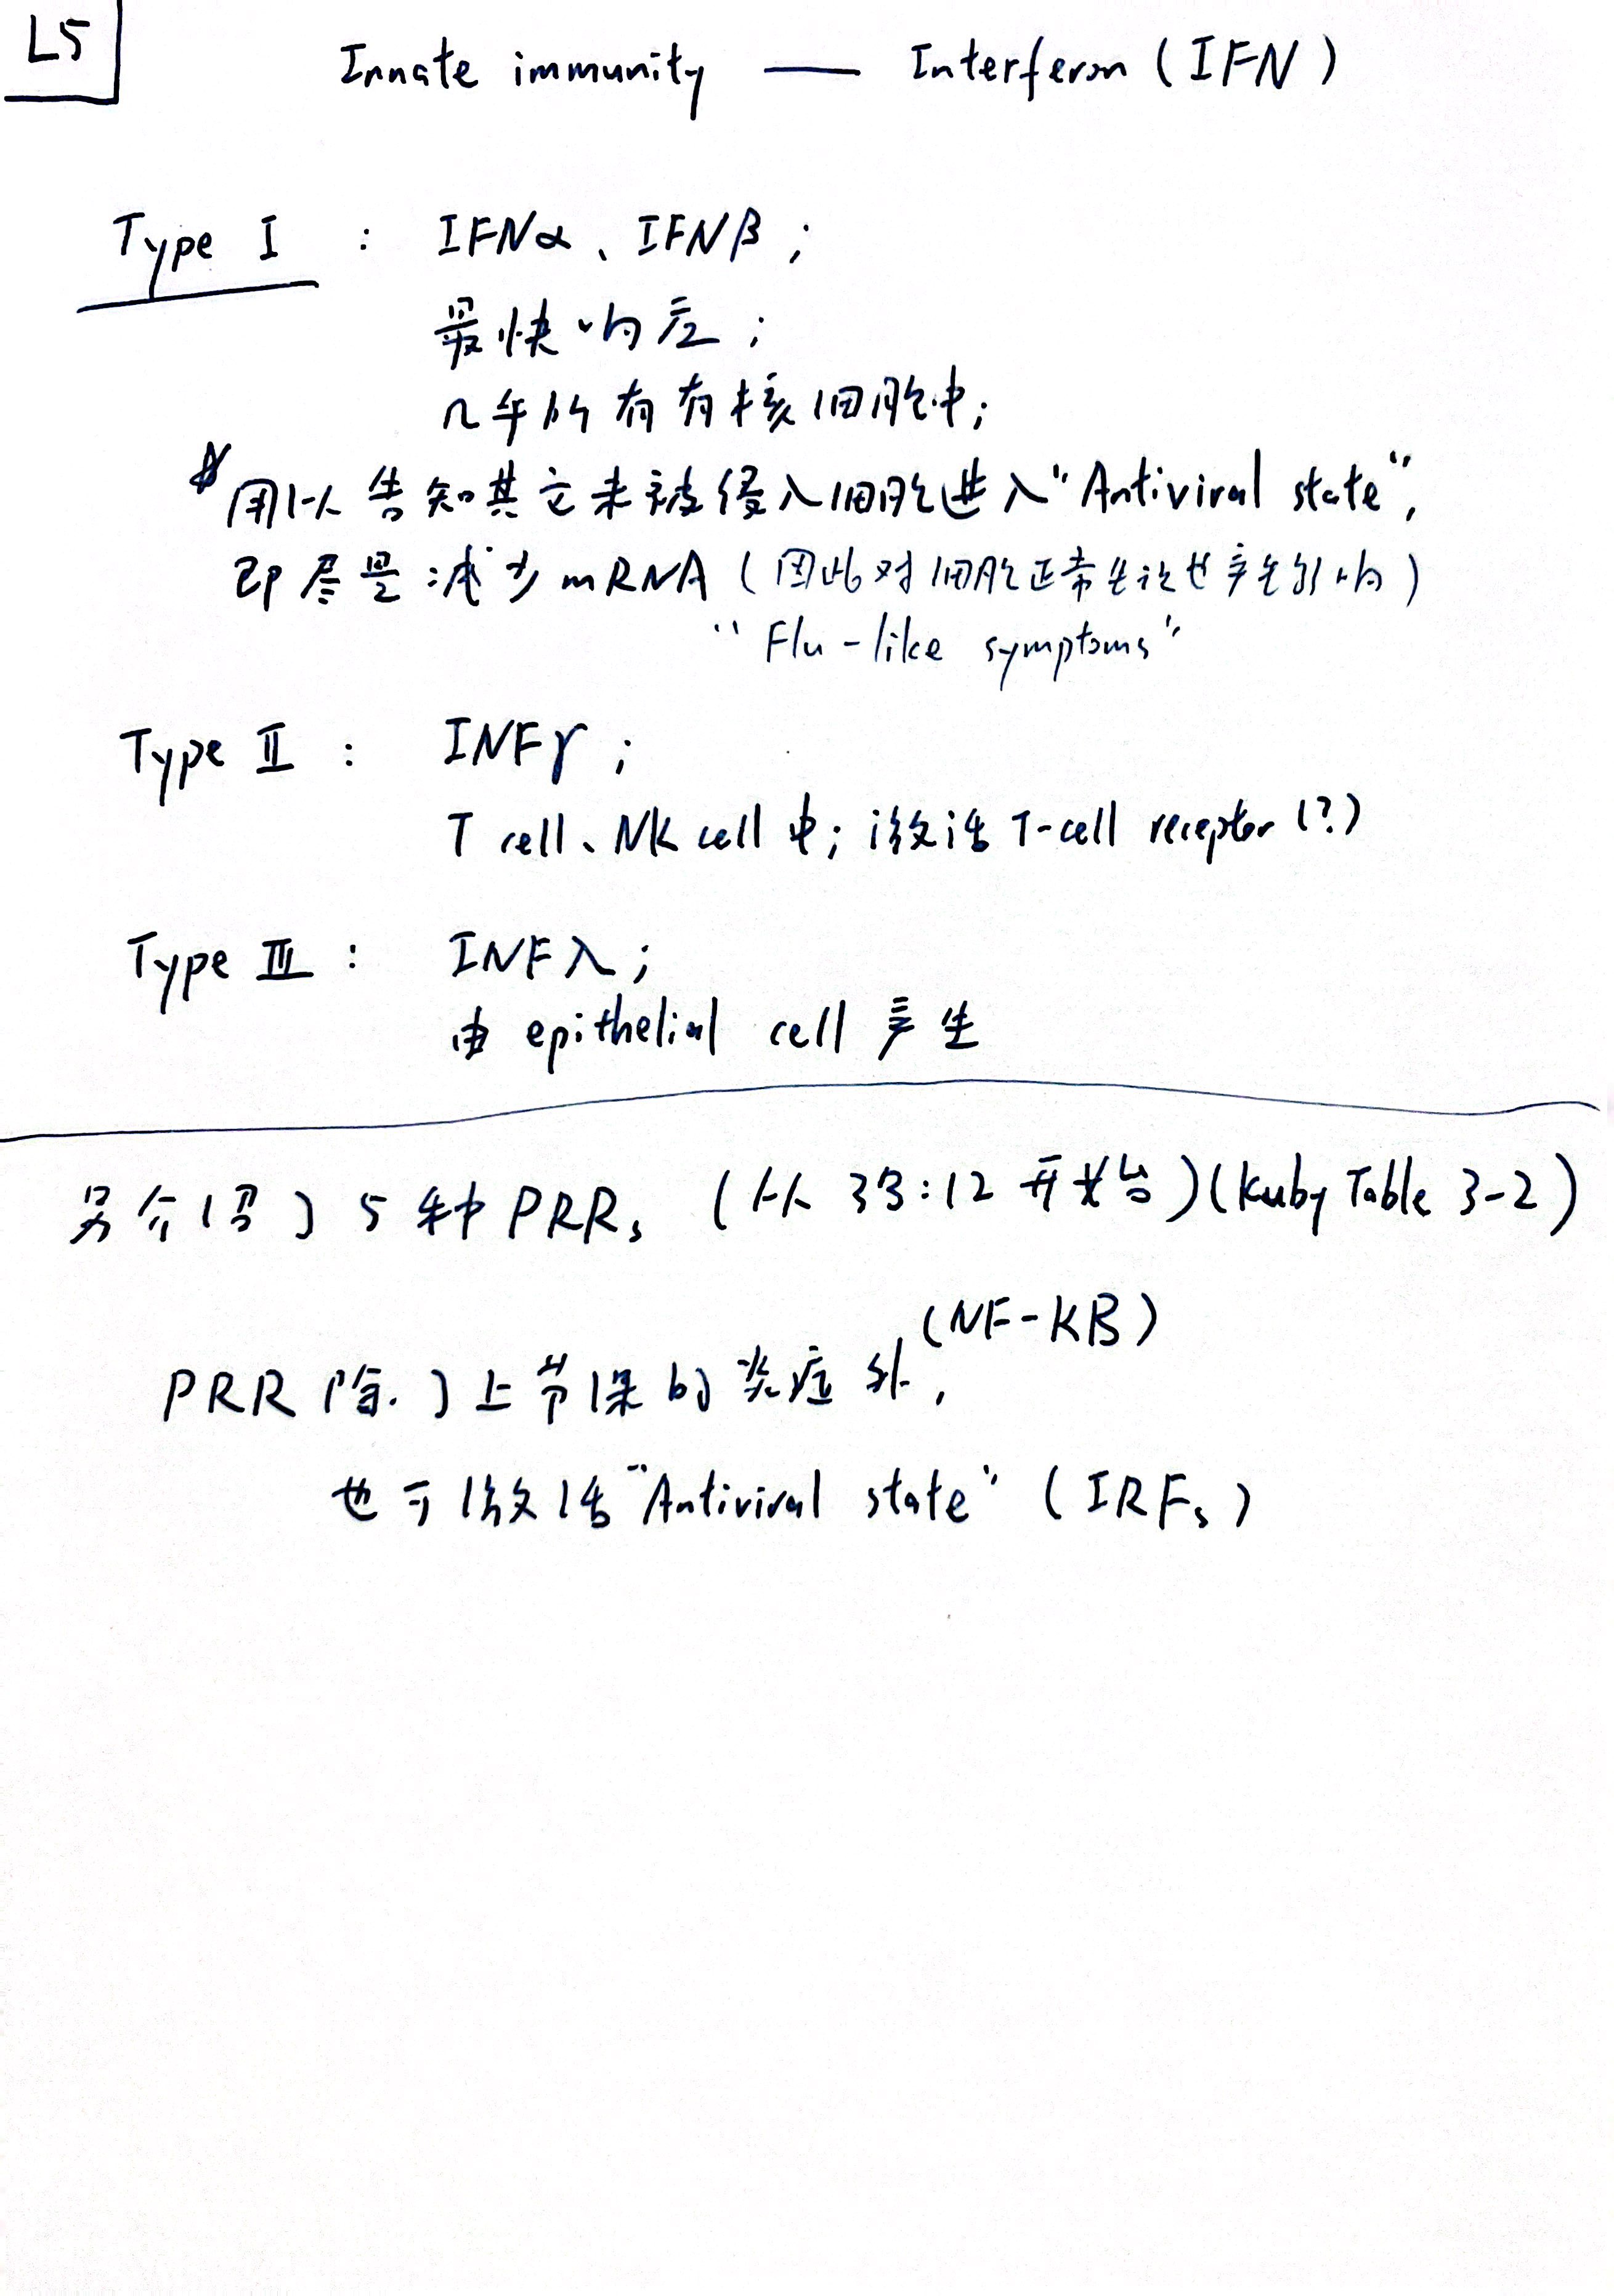 L5
Innate immunity — Interferon (IFN)
Type I : IFNα、IFNβ;
最快响应;
几乎所有有核细胞中;
用以告知其它未被侵入细胞进入"Antiviral state",
即尽量减少mRNA(因此对细胞正常生活也产生影响)
"Flu-like symptoms"
Type II : INFγ;
T cell、NK cell中;激活T-cell receptor(?)
Type III : INFλ;
由epithelial cell产生
另介绍了5种PRRs (从33:12开始)(Kuby Table 3-2)
(NF-KB)
PRR除了上节课的炎症外,
也可激活"Antiviral state"(IRFs)